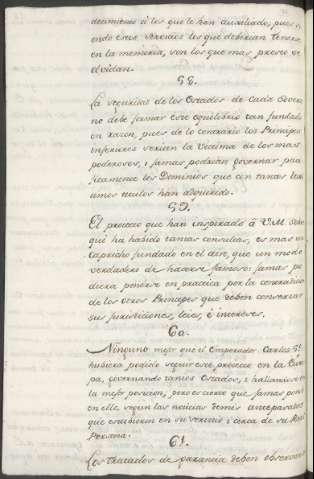 decimiento á los que le han auxiliado, pues si-
endo estos servicios los que deberian tenerse
en la memoria, son los que mas presto se
olvidan.
58.
La seguridad de los Estados de cada Sobera-
no debe formar este equilibrio tan fundado
en razon, pues de lo contrario los Principes
inferiores serian la Victima de los mas
poderosos, i jamas podrian governar paci-
ficamente los Dominios que con tantos legi-
timos titulos han adquirido.
59.
El proiecto que han inspirado á V.M. sobre
qué ha habido tantas consultas, es mas un
Capricho fundado en el aire, que un modo
verdadero de hacerse famoso: jamas po-
diera ponerse en practica por la contradicion
de los otros Principes que deben conservar
sus jurisdiciones, leies, é intereses.
60.
Ninguno mejor que el Emperador Carlos 5º
hubiera podido seguir este proiecto en la Euro-
pa, governando tantos Estados, i hallandose en
la mejor posicion, pero es cierto que jamas pensó
en ello, segun las noticias de mis antepasados
que estubieron en su servicio i cerca de su Real
Persona.
61.
Los tratados de garantia deben observarse